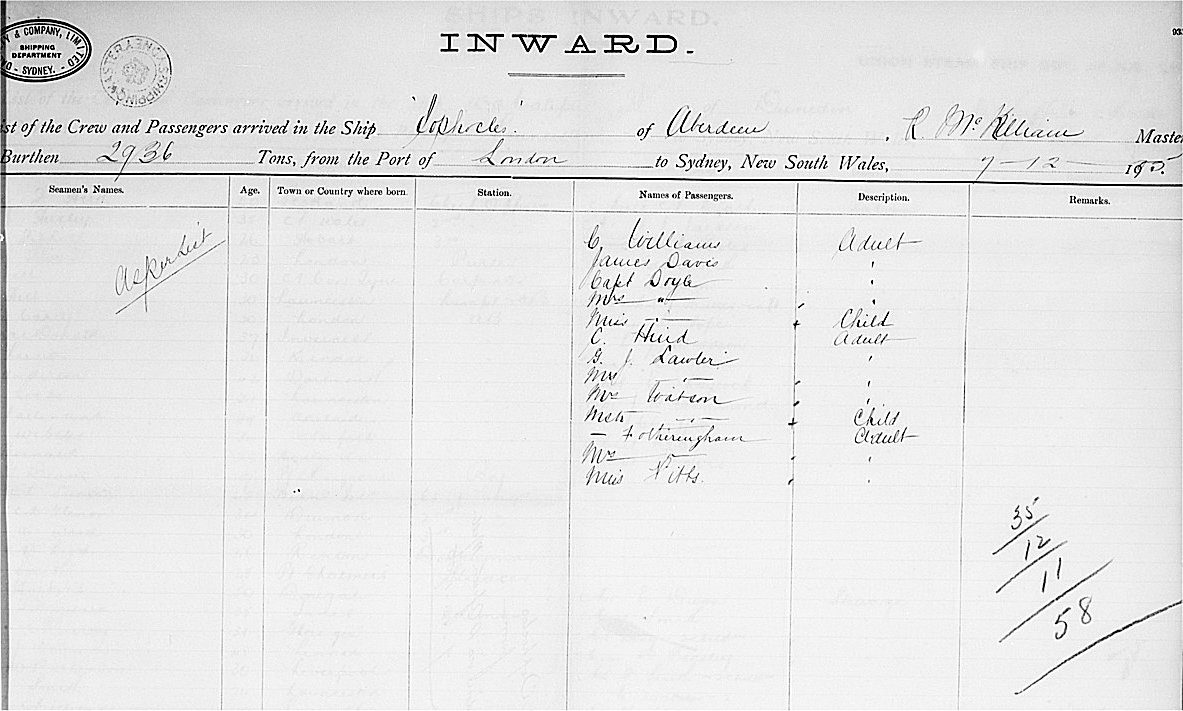 Y & COMPANY, LIMITED
SHIPPING
DEPARTMENT
SYDNEY.
INWARD.
933
ist of the Crew and Passengers arrived in the Ship Sophocles. of Aberdeen , R McKilliam Maste
Burthen 2936 Tons, from the Port of London to Sydney, New South Wales, 7-12- 195.
Seamen's Names. Age. Town or Country where born. Station. Names of Passengers. Description. Remarks.
As per List
C. Williams Adult
James Davis "
Capt Doyle "
Mrs " "
Miss " Child
C. Hind Adult
G. J. Lawler "
Mrs " "
Mrs Watson "
Mstr " Child
— Fotheringham Adult
Mrs " "
Miss "
35
12
11
58